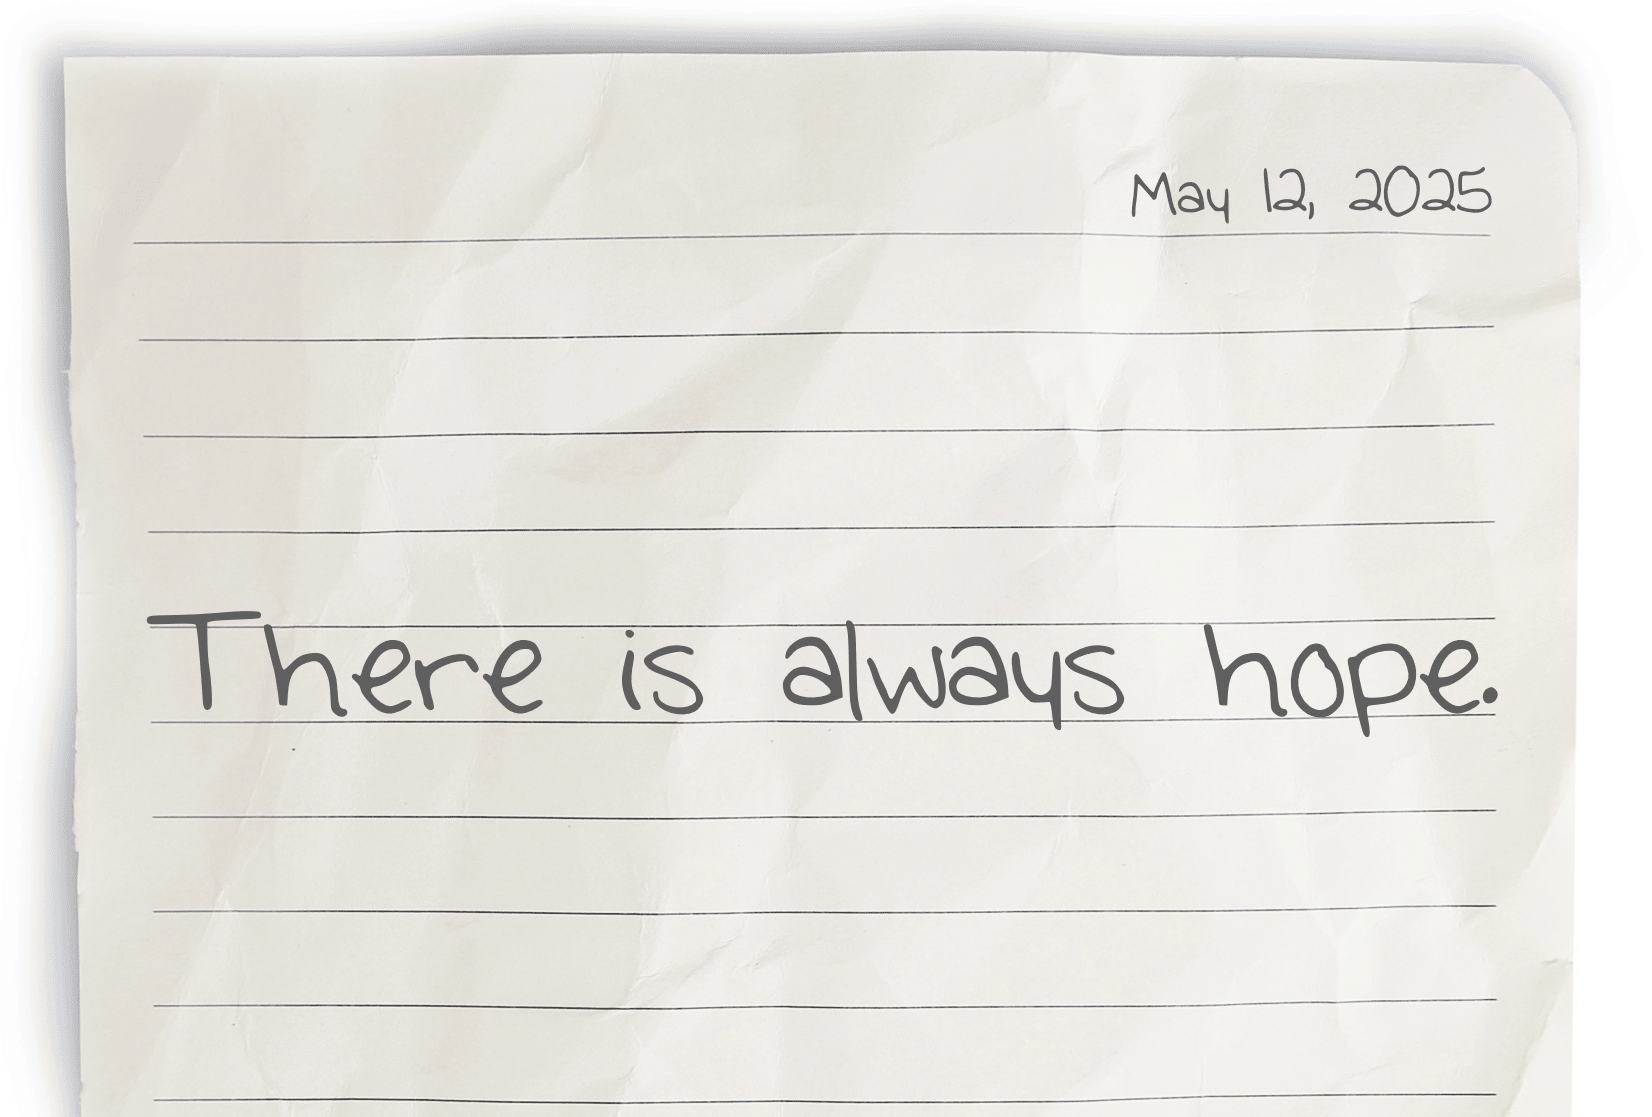 May 12, 2025
There is always hope.